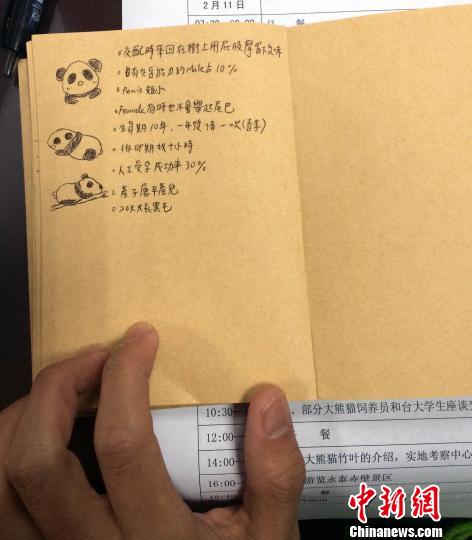 2月11日
早 餐
○交配時來回在樹上用屁股摩留下氣味
○自有生育能力的Male占10%
○Penis 短小
○Female有時也不會舉起尾巴
○生育期10年,一年發情一次(春季)
○排卵期找十小時
○人工受孕成功率30%
○產子屬早產兒
○20天大長黑毛
10:30— 、部分大熊猫饲养员和台大学生座谈交
12:00— 餐
14:00— 大熊猫竹叶的介绍,实地考察中心
16:00— 游览永泰赤壁景区
中新网
Chinanews.com